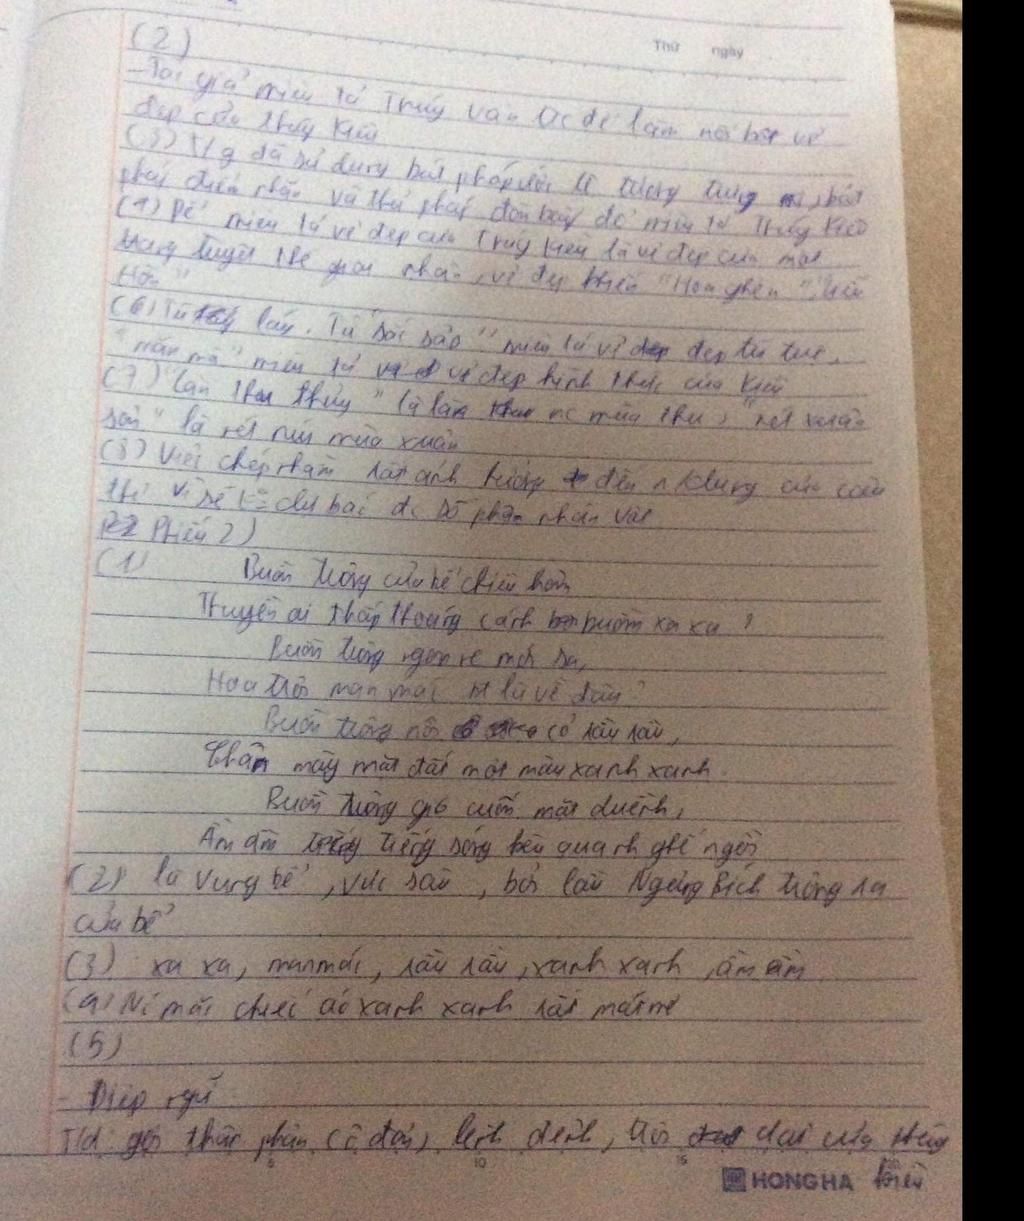 Thứ ngày
(2)
- Tác giả miêu tả Thúy Vân trc để làm nổi bật vẻ
đẹp của Thúy Kiều
(3) T/g đã sử dụng bút pháp ước lệ tượng trưng, bút
pháp điểm nhãn và thủ pháp đòn bẩy để miêu tả Thúy Kiều
(4) Để miêu tả vẻ đẹp của Thúy Kiều là vẻ đẹp của một
trang tuyệt thế giai nhân, vẻ đẹp khiến "Hoa ghen", liễu
hờn"
(6) Từ láy. Từ "sắc sảo" miêu tả vẻ đẹp trí tuệ.
"mặn mà" miêu tả vẻ đẹp hình thức của Kiều
(7) "Làn thu thủy" là làn nc mùa thu, "nét xuân
sơn" là nét núi mùa xuân
(8) Việc chép nhầm rất ảnh hưởng đến n/dung của câu
thơ vì sẽ k dự báo đc số phận nhân vật
Phiếu 2)
(1) Buồn trông cửa bể chiều hôm
Thuyền ai thấp thoáng cánh buồm xa xa?
Buồn trông ngọn nc mới sa,
Hoa trôi man mác là về đâu?
Buồn trông nội cỏ rầu rầu,
Chân mây mặt đất một màu xanh xanh.
Buồn trông gió cuốn mặt duềnh,
Ầm ầm tiếng sóng kêu quanh ghế ngồi
(2) là vùng bể, vực sâu, bởi lầu Ngưng Bích trông ra
cửa bể
(3) xa xa, man mác, rầu rầu, xanh xanh, ầm ầm
(4) Nó mặc chiếc áo xanh xanh rất mát mẻ
(5)
- Điệp ngữ
T/d: gợi thân phận cô đơn, lênh đênh, trôi dạt của Thúy
Kiều
HONG HA